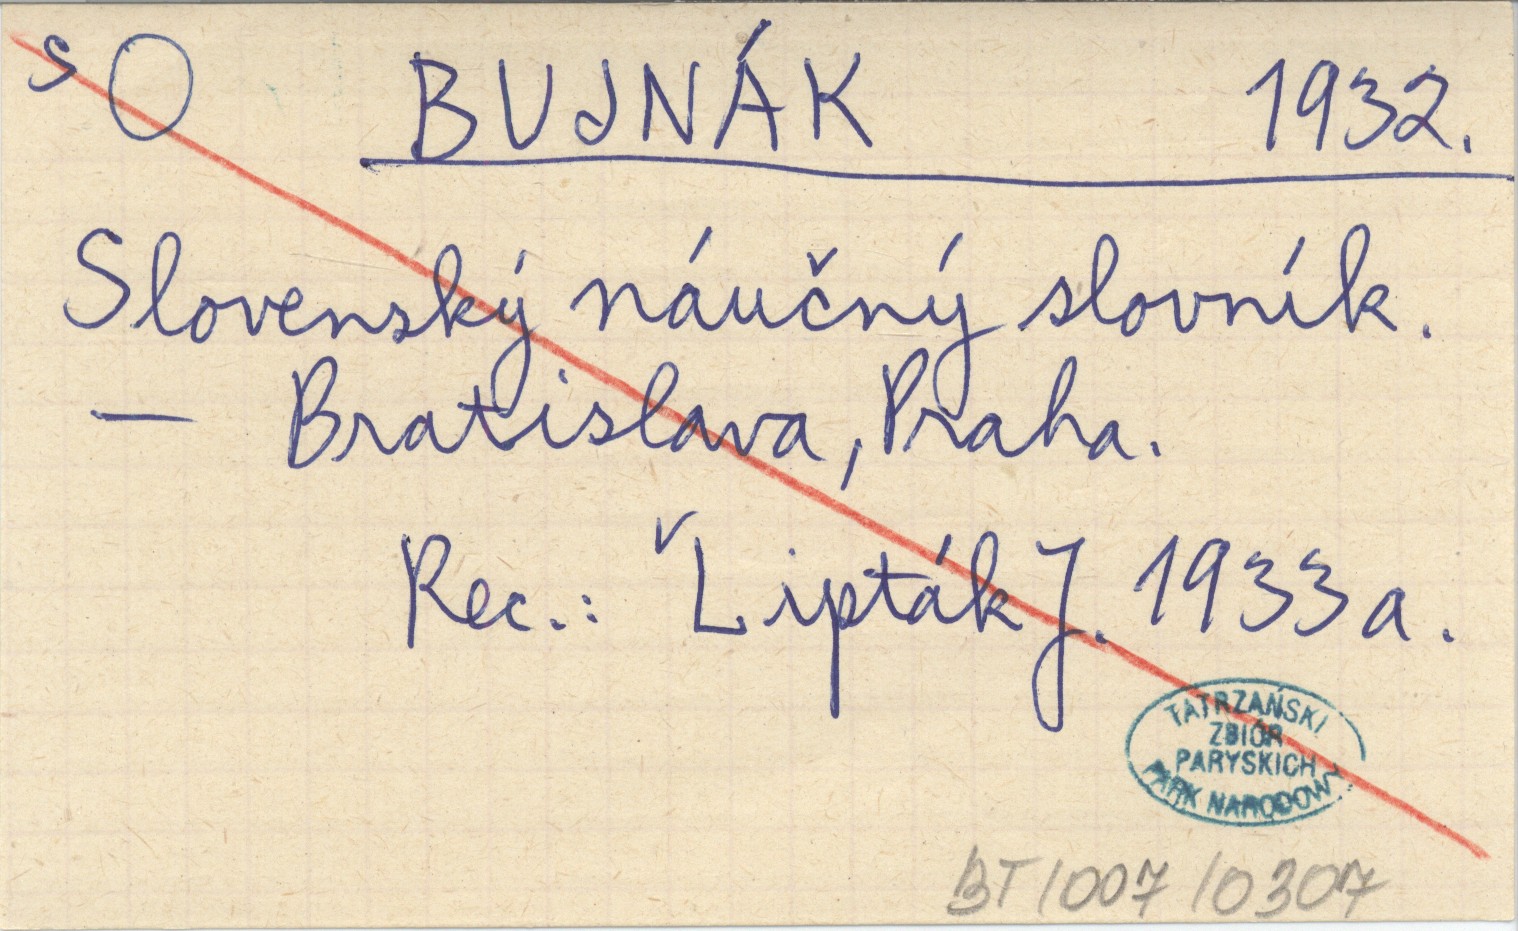 s O BUJNÁK 1932.
Slovenský náučný slovník.
— Bratislava, Praha.
Rec.: ˇLipták J. 1933a.
TATRZAŃSKI
ZBIÓR
PARYSKICH
PARK NARODOWY
BT/007/0307